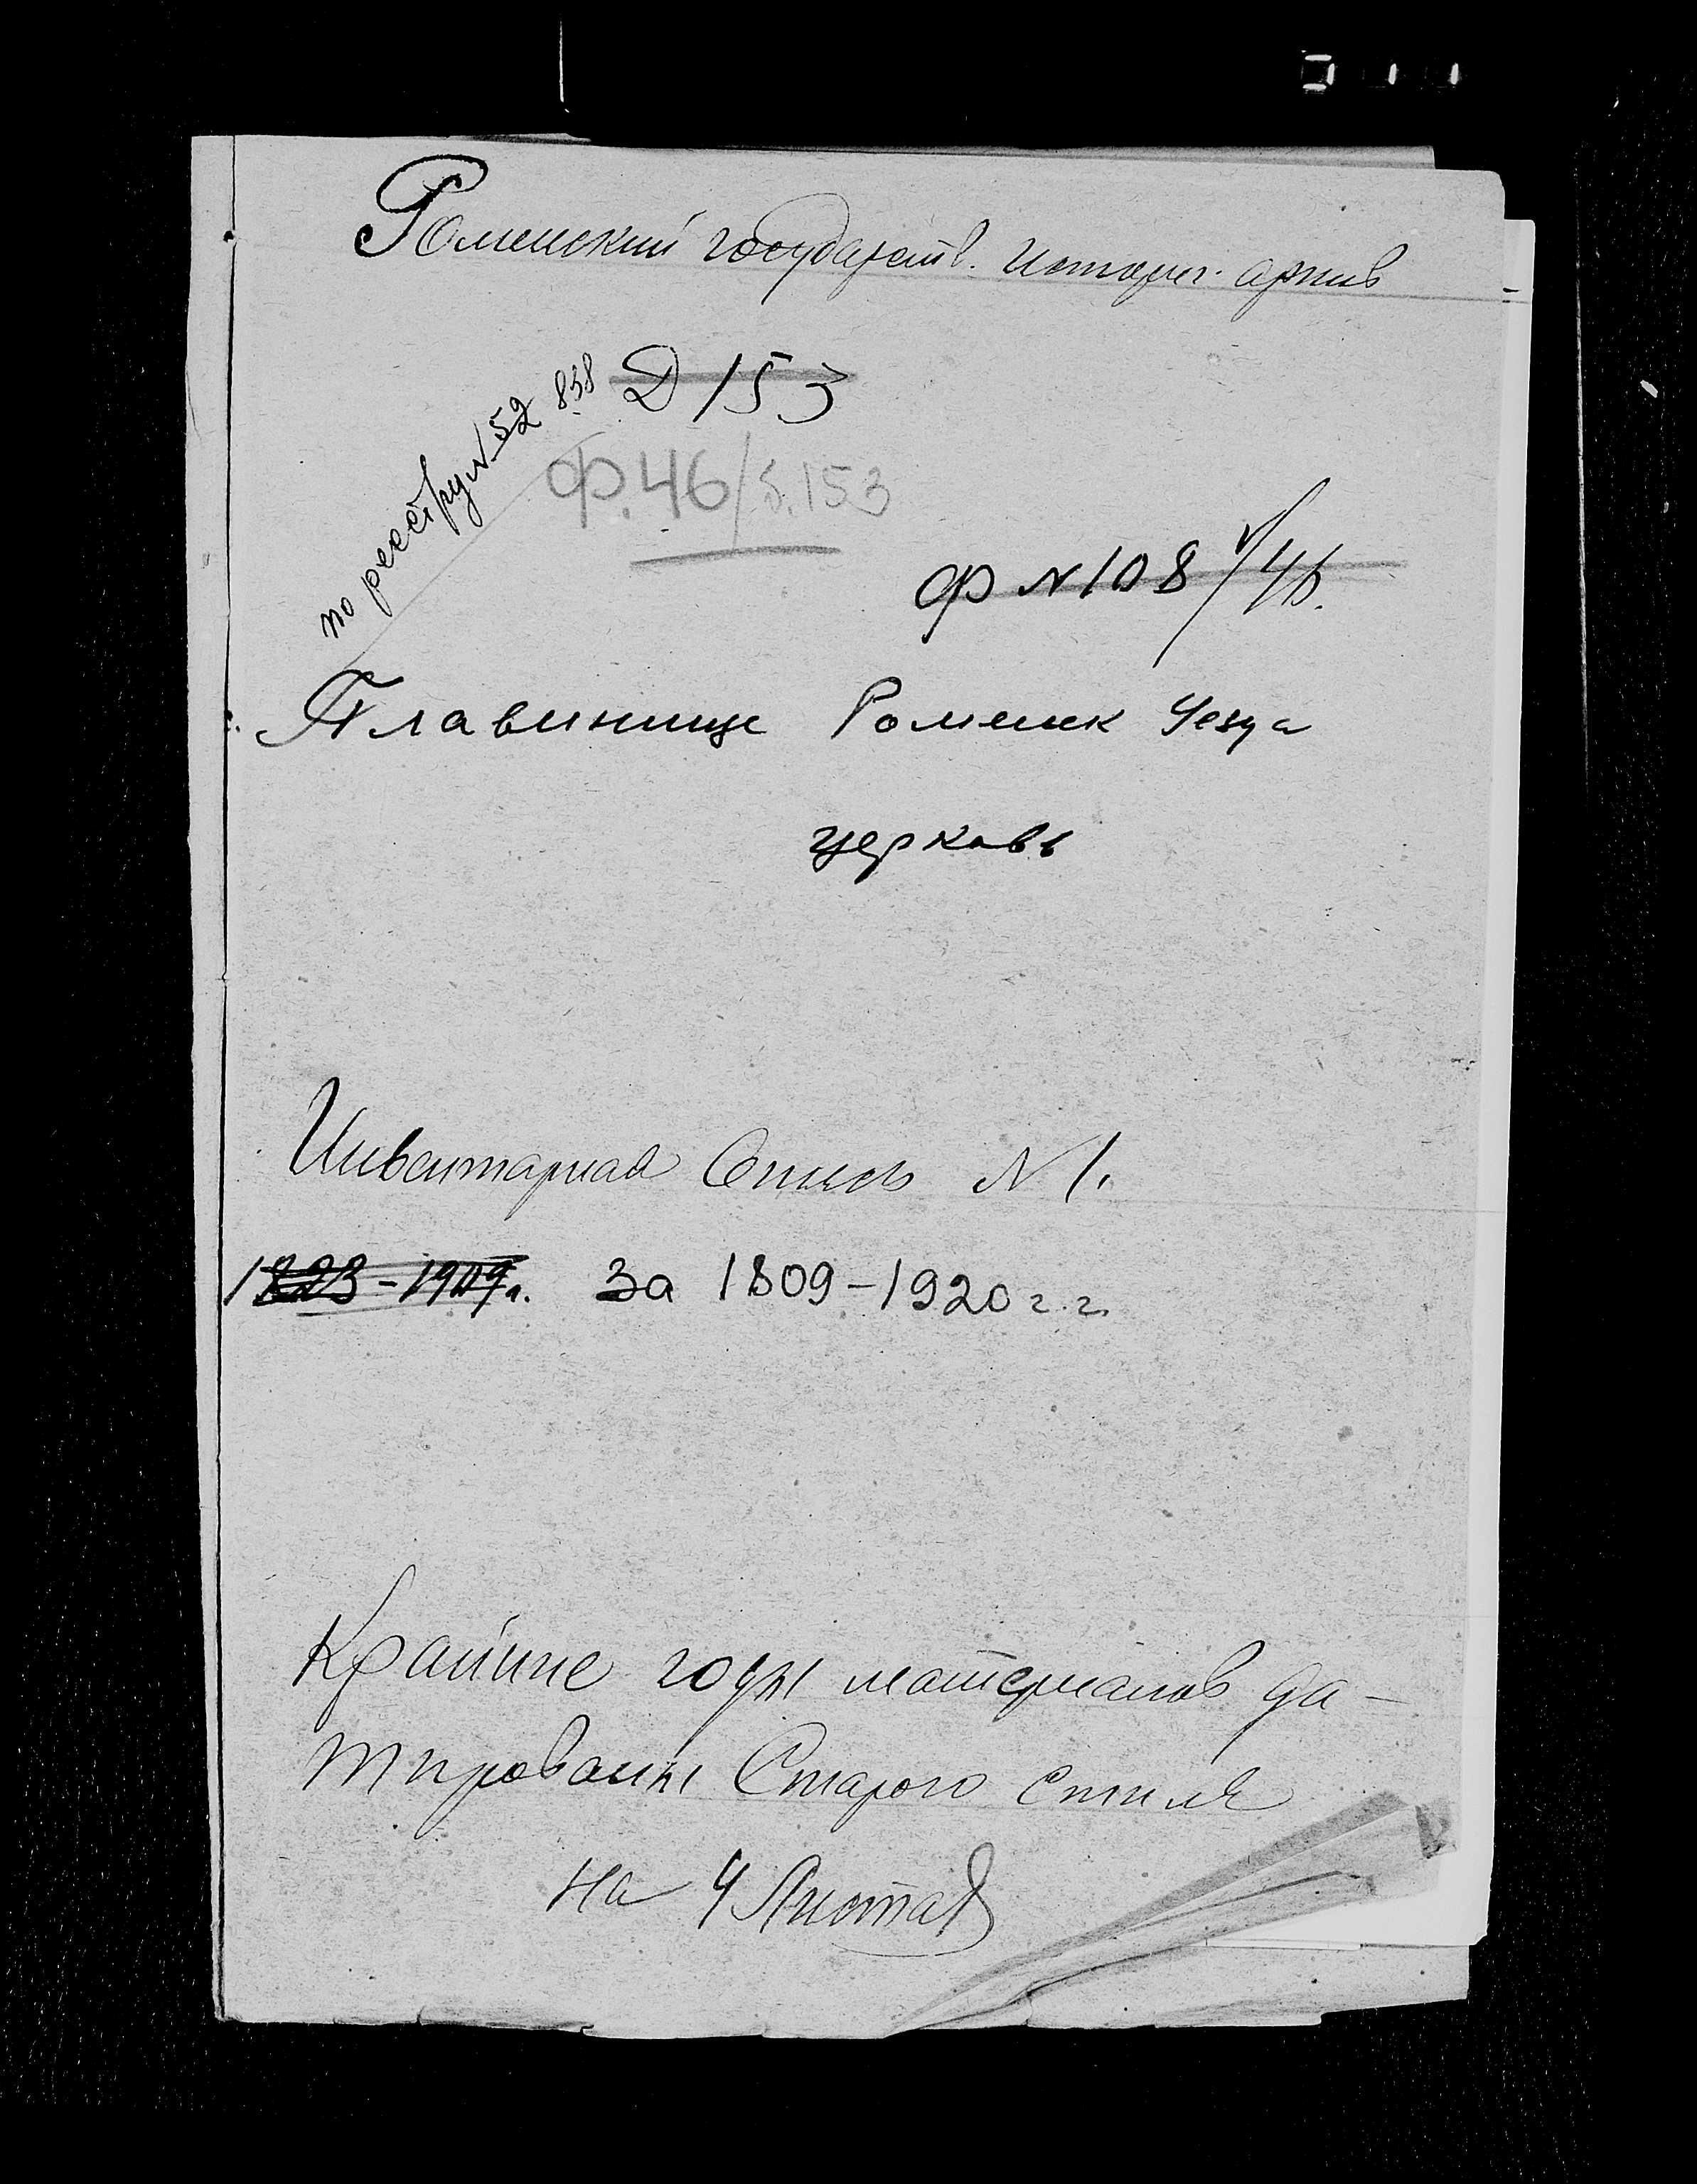 Роменский государств. историч. архив
Д 153
по реестру № 52 838
Ф. 46/д. 153
Ф № 108
Плавинище Роменск Уезда
церковь
Инвентарная Опись № 1.
1823-1909г. За 1809-1920 г.г.
Крайние годы материалов да-
тированы Старого стиля
на 4 Листах